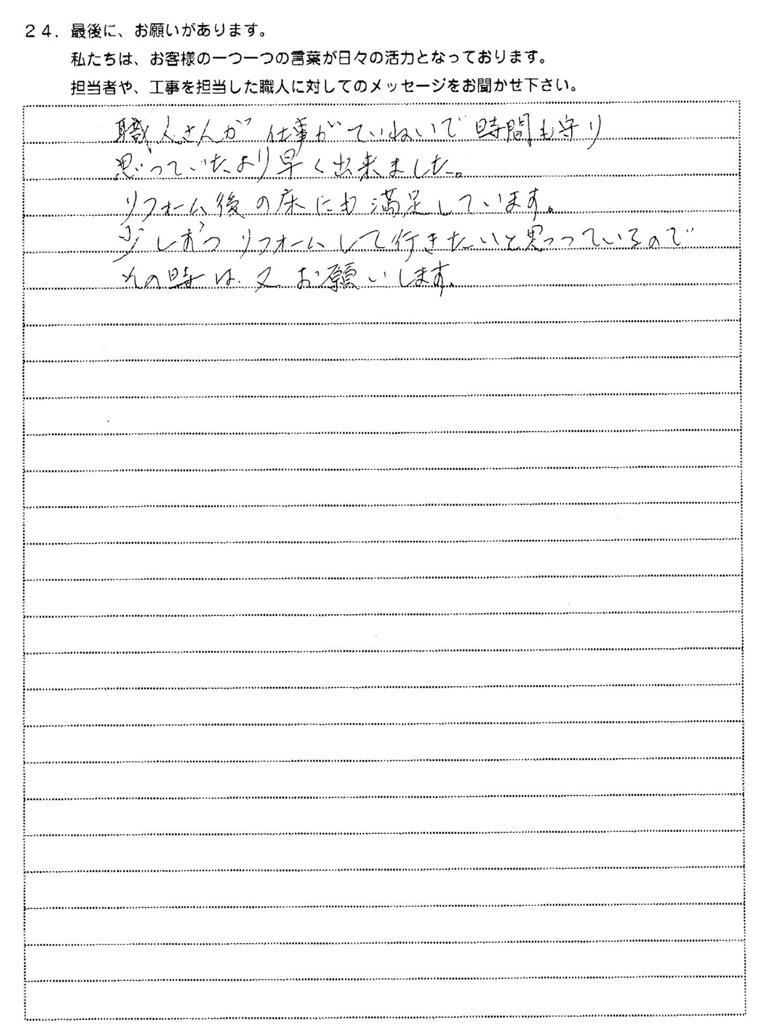 24．最後に、お願いがあります。
私たちは、お客様の一つ一つの言葉が日々の活力となっております。
担当者や、工事を担当した職人に対してのメッセージをお聞かせ下さい。
職人さんが 仕事がていねいで 時間も守り
思っていたより早く出来ました。
リフォーム後の床にも満足しています。
少しずつ リフォームして行きたいと思っているので
その時は、又 お願いします。